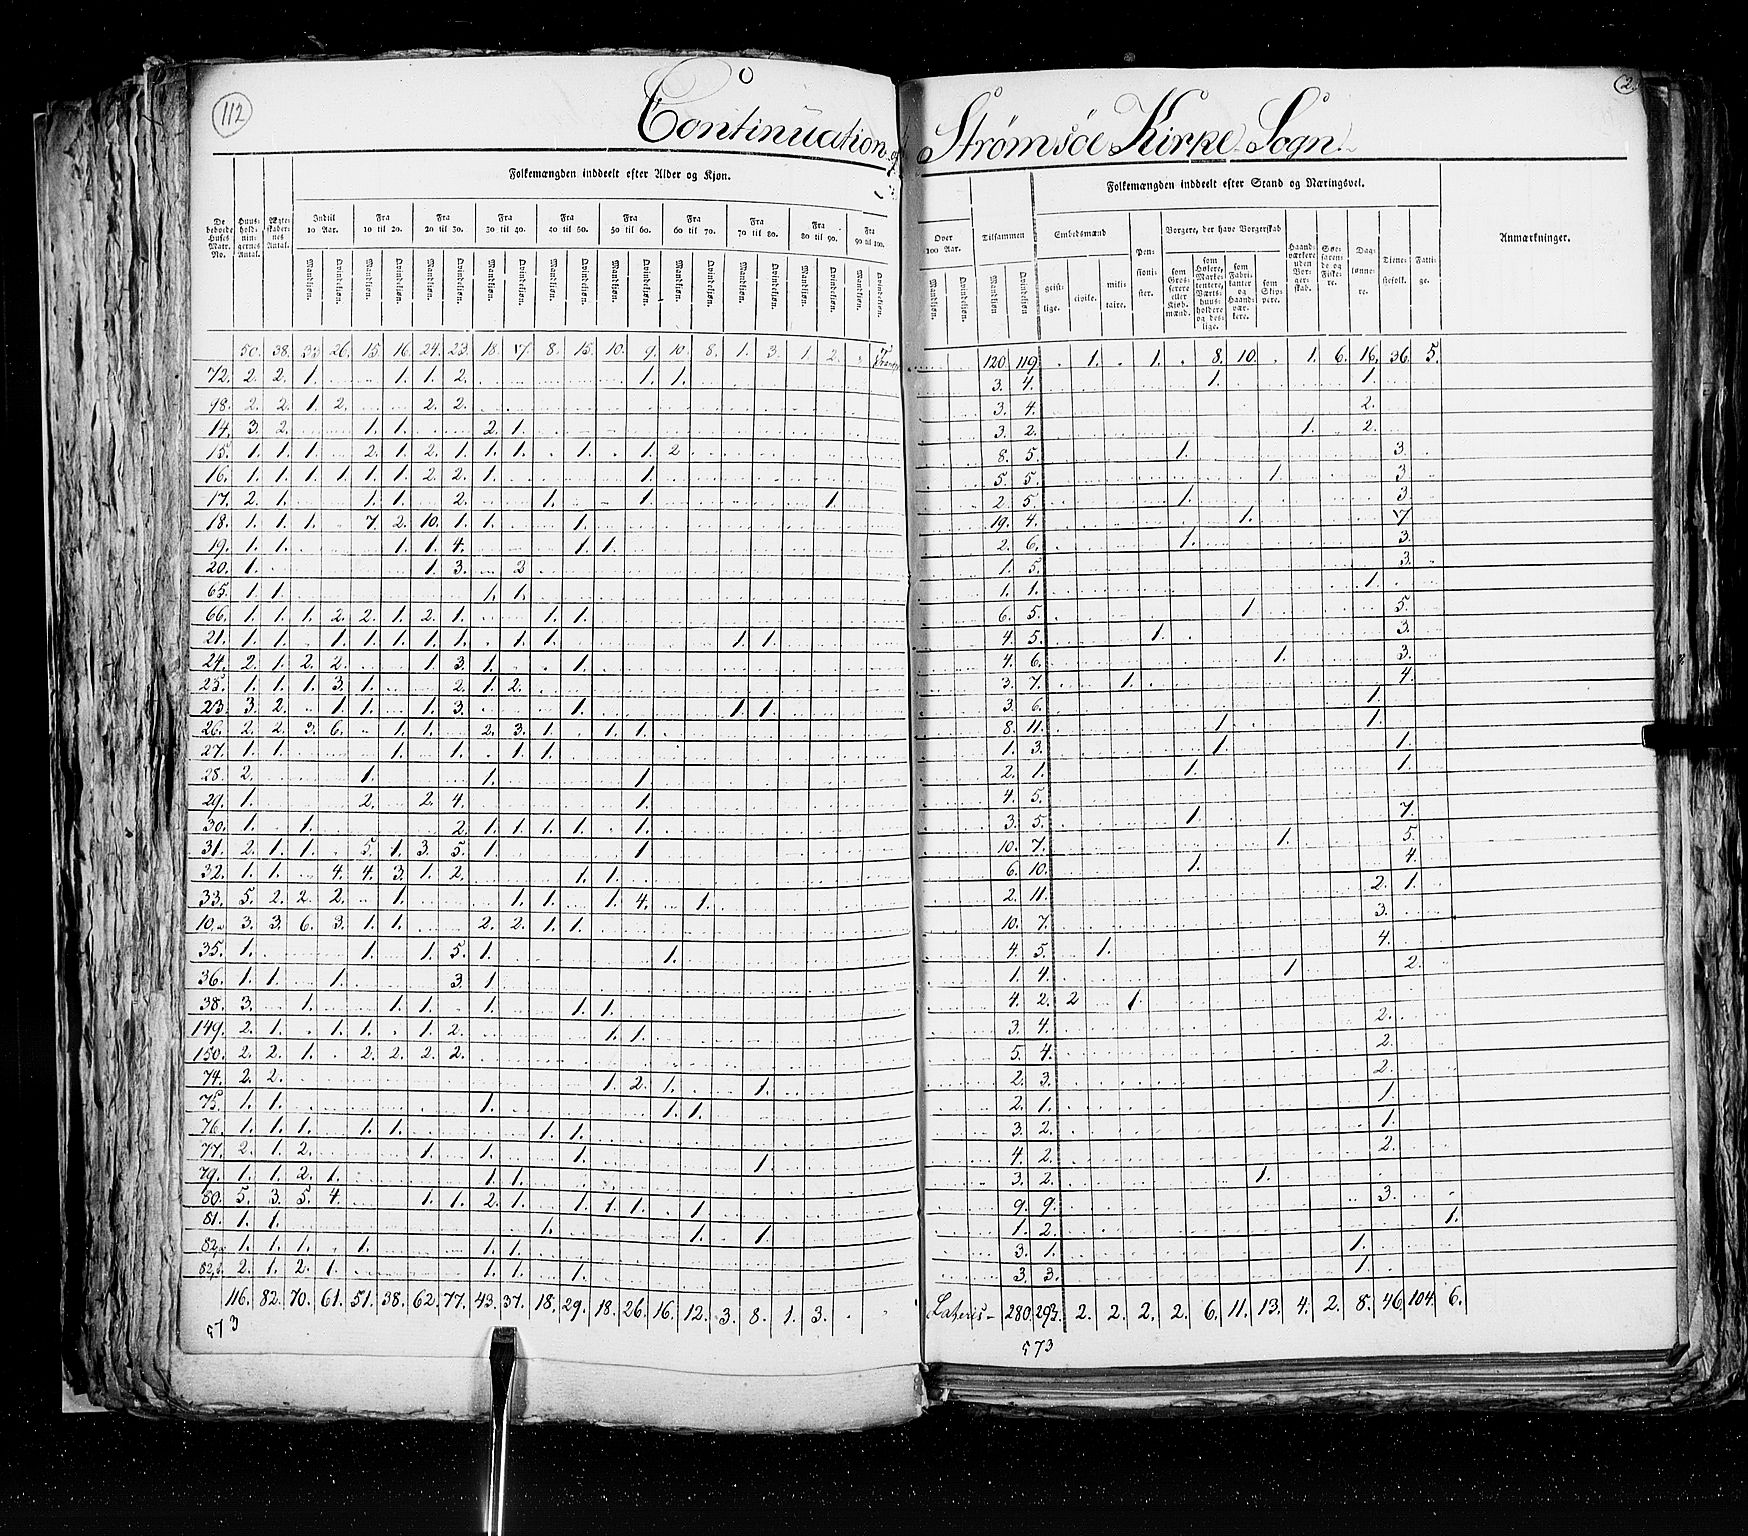 112
Continuation af Strømsöe Kirke Sogn.
2.
Folkemængden inddeelt efter Alder og Kjøn.
Folkemængden inddeelt efter Stand og Næringsvei.
De beboede Huses Matr. No.
Huusholdningernes Antal.
Ægteskabernes Antal.
Indtil 10 Aar.
Fra 10 til 20.
Fra 20 til 30.
Fra 30 til 40.
Fra 40 til 50.
Fra 50 til 60.
Fra 60 til 70.
Fra 70 til 80.
Fra 80 til 90.
Fra 90 til 100.
Over 100 Aar.
Tilsammen
Embedsmænd
geistlige.
civile.
militaire.
Pensionister.
Borgere, der have Borgerskab
som Grosserere eller Kiøbmænd.
som Høkere, Marketentere, Værtshuusholdere og deslige.
som Fabrikanter og Haandværkere.
som Skippere.
Haandværkere uden Borgerskab.
Søefarende og Fiskere.
Daglønnere.
Tienestefolk.
Fattige.
Anmærkninger.
Mandkiøn. Qvindekiøn. Mandkiøn. Qvindekiøn. Mandkiøn. Qvindekiøn. Mandkiøn. Qvindekiøn. Mandkiøn. Qvindekiøn. Mandkiøn. Qvindekiøn. Mandkiøn. Qvindekiøn. Mandkiøn. Qvindekiøn. Mandkiøn. Qvindekiøn. Mandkiøn. Qvindekiøn. Mandkiøn. Qvindekiøn. Mandkiøn. Qvindekiøn.
50. 38. 26. 15. 16. 24. 23. 18. 17. 8. 15. 10. 9. 10. 8. 1. 3. 1. 2. 120. 119. 1. 1. 8. 10. 1. 6. 16. 36. 5.
72. 2. 2. 1. 1. 1. 2. 1. 1. 3. 4. 1. 1.
98. 2. 2. 1. 2. 2. 2. 3. 4. 2.
14. 3. 2. 1. 1. 2. 1. 3. 2. 1. 2.
15. 1. 1. 1. 2. 1. 2. 1. 1. 1. 1. 1. 2 8. 5. 1. 3.
16. 1. 1. 1. 1. 1. 1. 2. 2. 1. 1. 5. 5. 1. 3
17. 2. 1. 1. 1. 2. 1. 1. 1. 2. 5. 1. 3
18. 1. 1. 1. 7. 2. 10. 1. 1. 1. 19. 4. 1. 7
19. 1. 1. 1. 1. 4. 1. 1. 2. 6. 1. 3.
20. 1. 1. 3. 2 1. 5. 3.
65. 1. 1. 1. 1. 1. 1. 1.
66. 1. 1. 1. 2. 2. 1. 2. 1. 1. 1. 6. 5. 1. 5.
21. 1. 1. 1. 1. 1. 1. 1. 1. 1. 1. 1. 4. 5. 1. 3.
24. 2. 1. 2. 2. 1. 3. 1. 1. 4. 6. 1. 3.
25. 1. 1. 1. 3. 1. 2. 1. 2. 3. 7. 1. 4.
23. 3. 2. 1. 1. 1. 3. 1. 1. 1. 3. 6. 1.
26. 2. 2. 3. 6. 1. 1. 2. 3. 1. 1. 1. 8. 11. 1. 1.
27. 1. 1. 1. 1. 1. 1. 1. 3. 1. 1.
28. 2. 1. 1. 1 2. 1. 1. 1.
29. 1. 2. 2. 4. 1. 4. 5.
30. 1. 1. 2. 1. 1. 1. 1. 1. 3. 5. 1. 7.
31. 2. 1. 1. 5. 1. 3. 5. 1. 1 10. 7. 1. 5.
32. 1. 1. 4. 4. 3. 1. 2. 1. 1. 6. 10. 1. 4.
33. 5. 2. 2. 2. 1. 1. 1. 1. 4. 1. 2. 11. 2. 1.
10. 3. 3. 6. 3. 1. 1. 2. 2. 1. 1. 10. 7. 3.
35. 1. 1. 1. 5. 1. 1. 4. 5. 1. 4.
36. 1. 1. 1. 3. 1 1. 4. 1 2.
38. 3. 1. 1. 1. 1. 1. 1. 4. 2. 2 1.
149. 2. 1. 1. 1. 1. 2. 1. 1. 3. 4. 2.
150. 2. 2. 1. 2. 2. 2. 2. 5. 4. 2.
74. 2. 2. 1. 2. 1. 1. 2. 3. 2.
75. 1. 1. 1. 1. 1. 2. 1. 1.
76. 1. 1. 1. 1. 1. 1. 1. 3. 2. 1.
77. 2. 1. 2. 1. 1. 1. 1. 4. 2. 2.
79. 1. 1. 2. 1. 1. 1. 3. 2. 1.
80. 5. 3. 5. 4. 1. 1. 2. 1. 1. 1. 1. 1. 9. 9. 3.
81. 1. 1. 1. 1. 1. 1. 2. 1.
82. 1. 1. 1. 1. 1. 1. 3. 1. 1.
2. 1. 2. 1. 1. 1. 1. 3. 3. 1.
116. 82. 70. 61. 51. 38. 62. 77. 43. 37. 18. 29. 18. 26. 16. 12. 3. 8. 1. 3. Lateris 280. 293. 2. 2. 2. 2. 6. 11. 13. 4. 2. 8. 46. 104. 6.
573
573